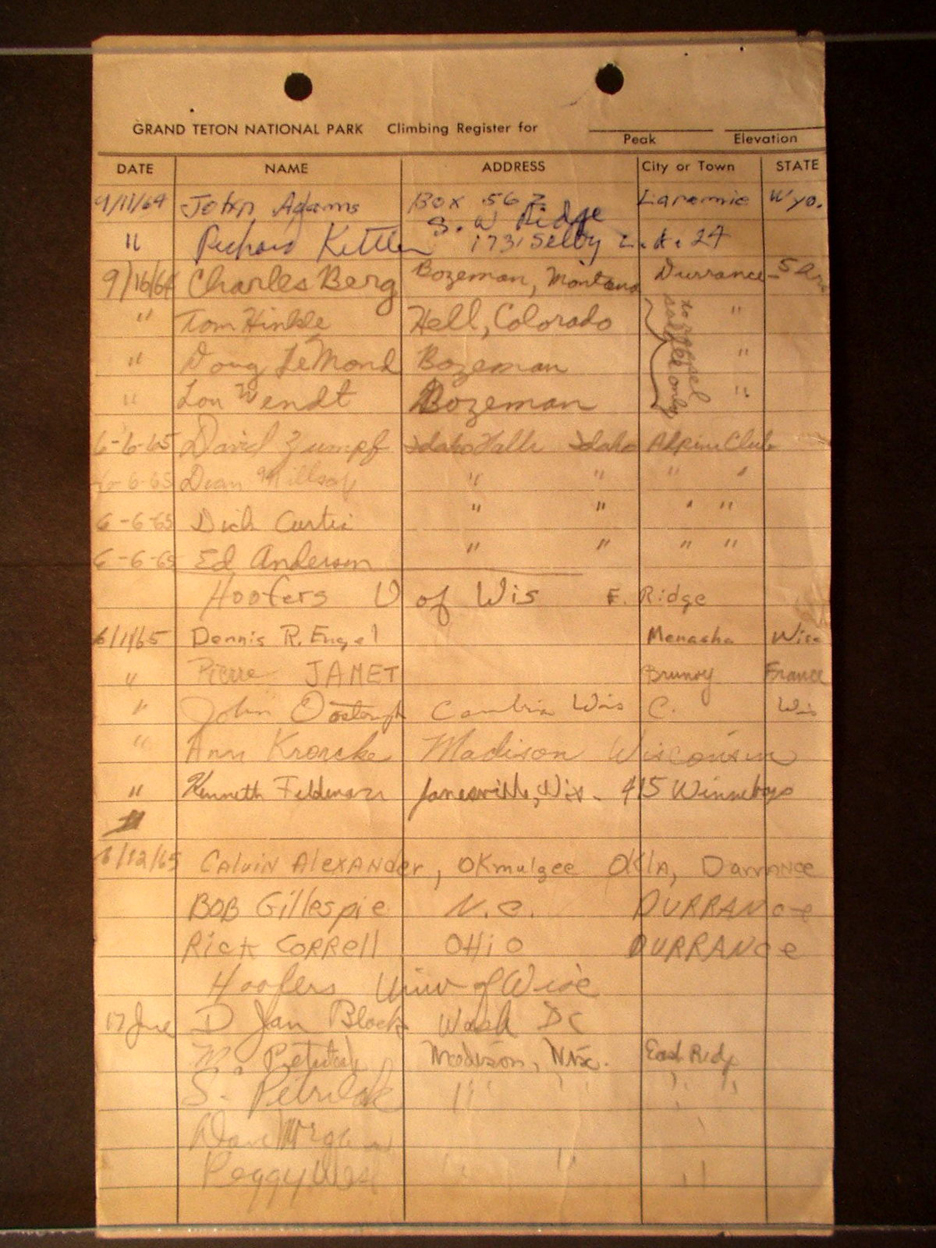 GRAND TETON NATIONAL PARK Climbing Register for
Peak Elevation
DATE NAME ADDRESS City or Town STATE
9/11/64 John Adams Box 562 Laramie Wyo.
S. W Ridge
" Richard Kettler 1731 Selby L.A. 24
9/16/64 Charles Berg Bozeman, Montana Durrance
" Tom Hinkle Hell, Colorado "
" Doug LeMond Bozeman "
" Lou Wendt Bozeman "
to rappel
saddle only
6-6-65 David Zumpf Idaho Falls Idaho Alpine Club
6-6-65 Dean " " " "
6-6-65 Dick Curtis " " " "
6-6-65 Ed Anderson " " " "
Hoofers U of Wis E. Ridge
6/11/65 Dennis R. Engel Menasha Wisc
" Pierre JAMET Brunoy France
" John Cambria Wis C. Wis
" Ann Krorcke Madison Wisconsin
" Kenneth Feldman Janesville, Wis. 415 Winnebago
6/12/65 CALVIN ALEXANDER, OKmulgee OKLA, Durrance
BOB Gillespie N.C. DURRANCE
RICK CORRELL OHIO DURRANCE
Hoofers Univ of Wisc
17 June D Jan Block Wash DC
M. Madison, Wisc. East Ridge
S. " " " "
Dave Morgan
Peggy West "